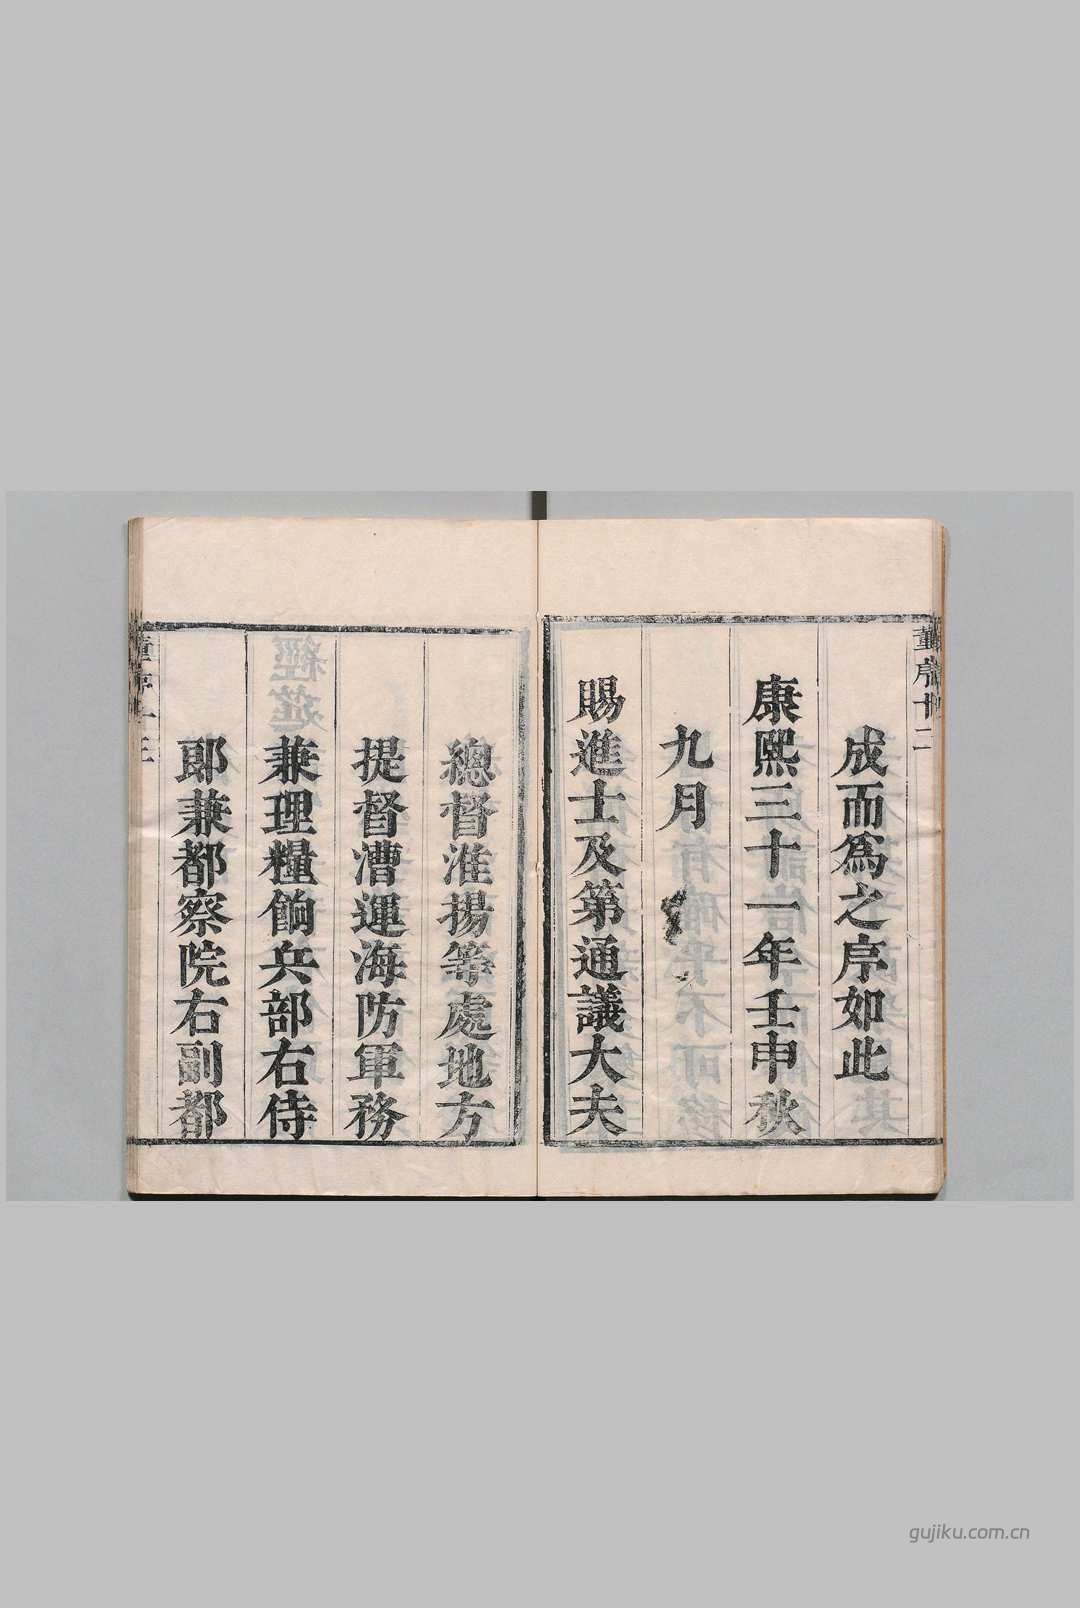 成而爲之序如此
康熙三十一年壬申秋
九月
賜進士及第通議大夫
總督淮揚等處地方
提督漕運海防軍務
兼理糧餉兵部右侍
郎兼都察院右副都
gujiku.com.cn